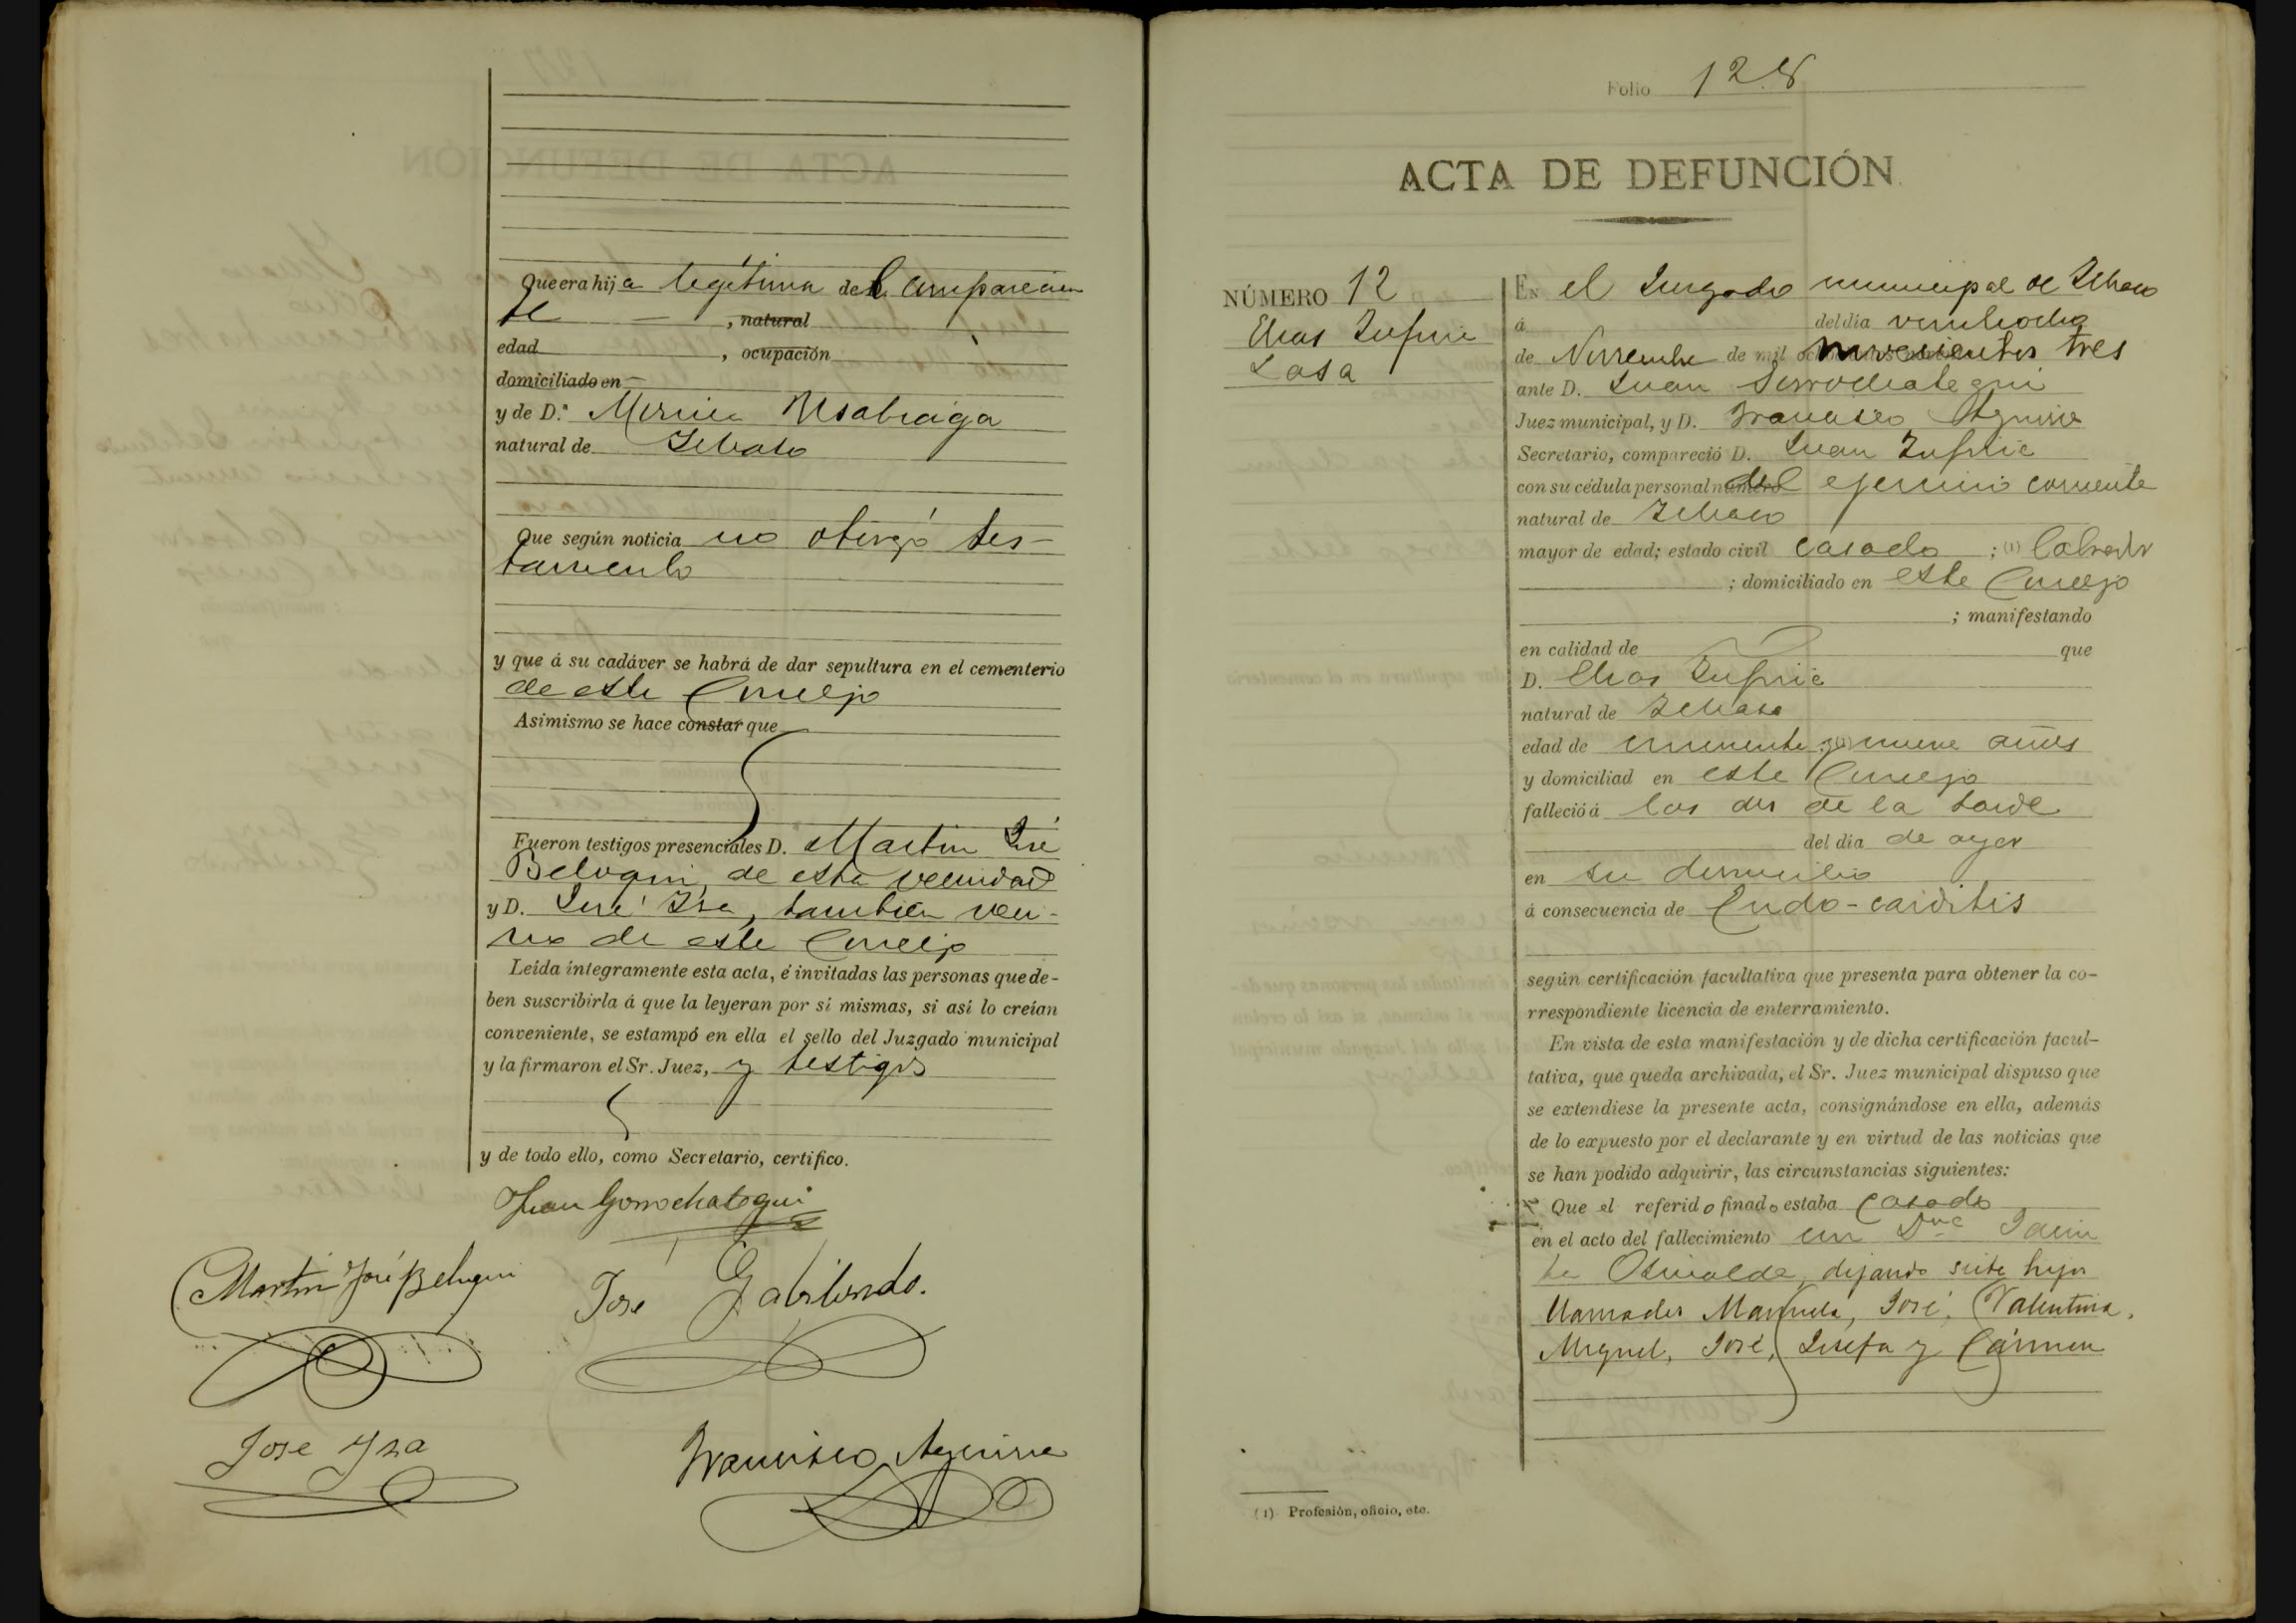 Que era hija legítima del comparecien
te — , natural
edad , ocupación
domiciliado en —
y de D.ª Usabiaga
natural de
Que según noticia no otorgó tes-
tamento
y que á su cadáver se habrá de dar sepultura en el cementerio
de este Concejo
Asimismo se hace constar que
Fueron testigos presenciales D. Martin José
Beloqui, de esta vecindad
y D. José Isa, tambien veci-
no de este Concejo
Leída íntegramente esta acta, é invitadas las personas que de-
ben suscribirla á que la leyeran por sí mismas, si así lo creían
conveniente, se estampó en ella el sello del Juzgado municipal
y la firmaron el Sr. Juez, y testigos
y de todo ello, como Secretario, certifico.
Juan Gorrochategui
Martin José Beloqui
José Gabilondo.
Jose Ysa
Francisco Aguirre
Folio 128
ACTA DE DEFUNCIÓN
NÚMERO 12
Elias
Lasa
En el Juzgado municipal de
á del dia veintiocho
de Noviembre de mil novecientos tres
ante D. Juan Gorrochategui
Juez municipal, y D. Francisco Aguirre
Secretario, compareció D. Juan
con su cédula personal número del ejercicio corriente
natural de
mayor de edad; estado civil casado ; (1) labrador
; domiciliado en este Concejo
; manifestando
en calidad de que
D. Elias
natural de
edad de cincuenta y nueve años
y domiciliad en este Concejo
falleció á las dos de la tarde
del dia de ayer
en su domicilio
á consecuencia de Endo-carditis
según certificación facultativa que presenta para obtener la co-
rrespondiente licencia de enterramiento.
En vista de esta manifestación y de dicha certificación facul-
tativa, que queda archivada, el Sr. Juez municipal dispuso que
se extendiese la presente acta, consignándose en ella, además
de lo expuesto por el declarante y en virtud de las noticias que
se han podido adquirir, las circunstancias siguientes:
Que el referido finado estaba casado
en el acto del fallecimiento con Dña
dejando siete hijos
llamados Manuela, José, Valentina,
Miguel, José, Josefa y Cármen
(1) Profesión, oficio, etc.